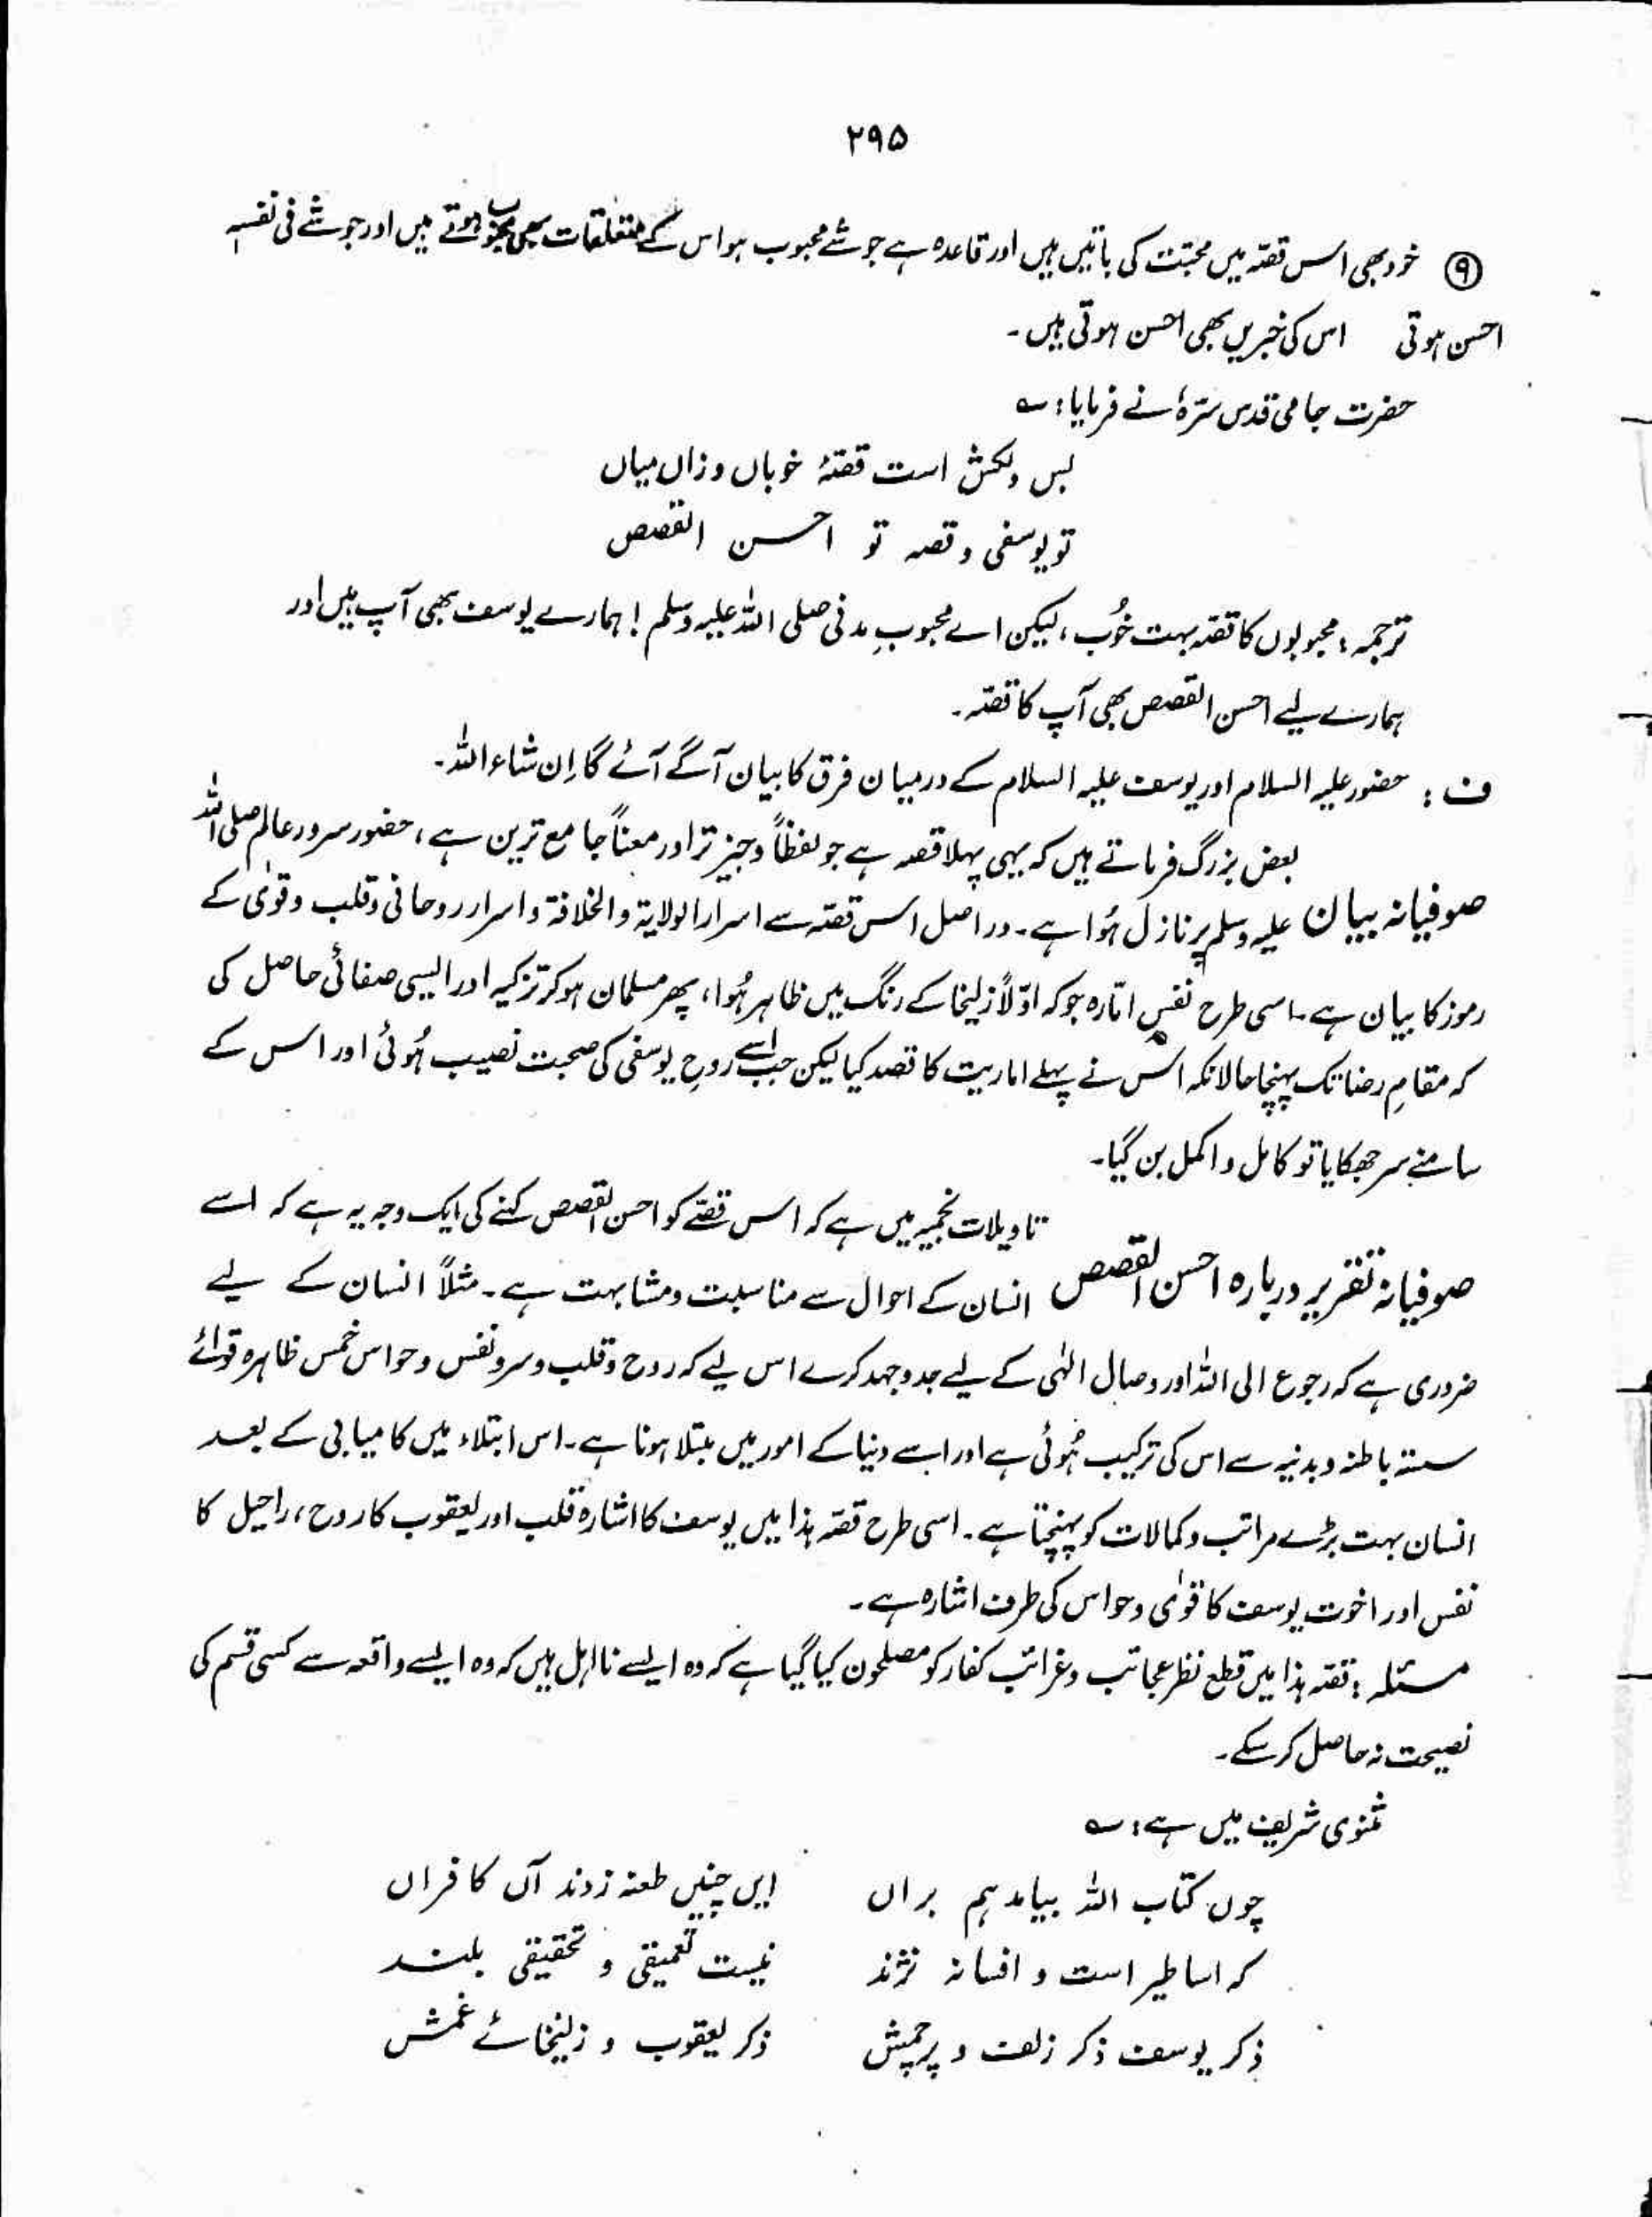 ۲۹۵
⑨ خود بھی اس قصّہ میں محبّت کی باتیں ہیں اور قاعدہ ہے جو شے محبوب ہو اس کے متعلقات بھی محبوب ہوتے ہیں اور جو شے فی نفسہٖ
احسن ہوتی اس کی خبریں بھی احسن ہوتی ہیں۔
حضرت جامی قدس سرّہٗ نے فرمایا: ؎
بس دلکش است قصّۂ خوباں و زاں میاں
تو یوسفی و قصہ تو احسن القصص
ترجمہ: محبوبوں کا قصّہ بہت خُوب، لیکن اے محبوبِ مدنی صلی اللہ علیہ وسلم! ہمارے یوسف بھی آپ ہیں اور
ہمارے لیے احسن القصص بھی آپ کا قصّہ۔
ف: حضور علیہ السلام اور یوسف علیہ السلام کے درمیان فرق کا بیان آگے آئے گا اِن شاء اللہ۔
بعض بزرگ فرماتے ہیں کہ یہی پہلا قصہ ہے جو لفظاً وجیز تر اور معناً جامع ترین ہے، حضور سرور عالم صلی اللہ
صوفیانہ بیان علیہ وسلم پر نازل ہُوا ہے۔ در اصل اس قصّہ سے اسرار الولایۃ و الخلافۃ و اسرار روحانی و قلب و قوٰی کے
رموز کا بیان ہے۔ اسی طرح نفسِ امّارہ جو کہ اوّلاً زلیخا کے رنگ میں ظاہر ہُوا، پھر مسلمان ہو کر تزکیہ اور ایسی صفائی حاصل کی
کہ مقامِ رضا تک پہنچا حالانکہ اس نے پہلے اماریت کا قصد کیا لیکن جب اسے روحِ یوسفی کی صحبت نصیب ہُوئی اور اس کے
سامنے سر جھکایا تو کامل و اکمل بن گیا۔
تاویلات نجمیہ میں ہے کہ اس قصّے کو احسن القصص کہنے کی ایک وجہ یہ ہے کہ اسے
صوفیانہ تقریر دربارہ احسن القصص انسان کے احوال سے مناسبت و مشابہت ہے۔ مثلاً انسان کے لیے
ضروری ہے کہ رجوع الی اللہ اور وصال الٰہی کے لیے جدوجہد کرے اس لیے کہ روح و قلب و سر و نفس و حواس خمس ظاہرہ قوائے
ستہ باطنہ و بدنیہ سے اس کی ترکیب ہُوئی ہے اور اسے دنیا کے امور میں مبتلا ہونا ہے۔ اس ابتلاء میں کامیابی کے بعد
انسان بہت بڑے مراتب و کمالات کو پہنچتا ہے۔ اسی طرح قصّہ ہذا میں یوسف کا اشارہ قلب اور یعقوب کا روح، راحیل کا
نفس اور اخوت یوسف کا قوٰی و حواس کی طرف اشارہ ہے۔
مسئلہ: قصّہ ہذا میں قطع نظر عجائب و غرائب کفار کو مصلحون کیا گیا ہے کہ وہ ایسے نااہل ہیں کہ وہ ایسے واقعہ سے کسی قسم کی
نصیحت نہ حاصل کر سکے۔
مثنوی شریف میں ہے: ؎
چوں کتاب اللہ بیامد ہم براں ایں چنیں طعنہ زدند آں کافراں
کہ اساطیر است و افسانہ نژند نیست تعمیقی و تحقیقی بلند
ذکر یوسف ذکر زلف و پرچمش ذکر یعقوب و زلیخائے غمش